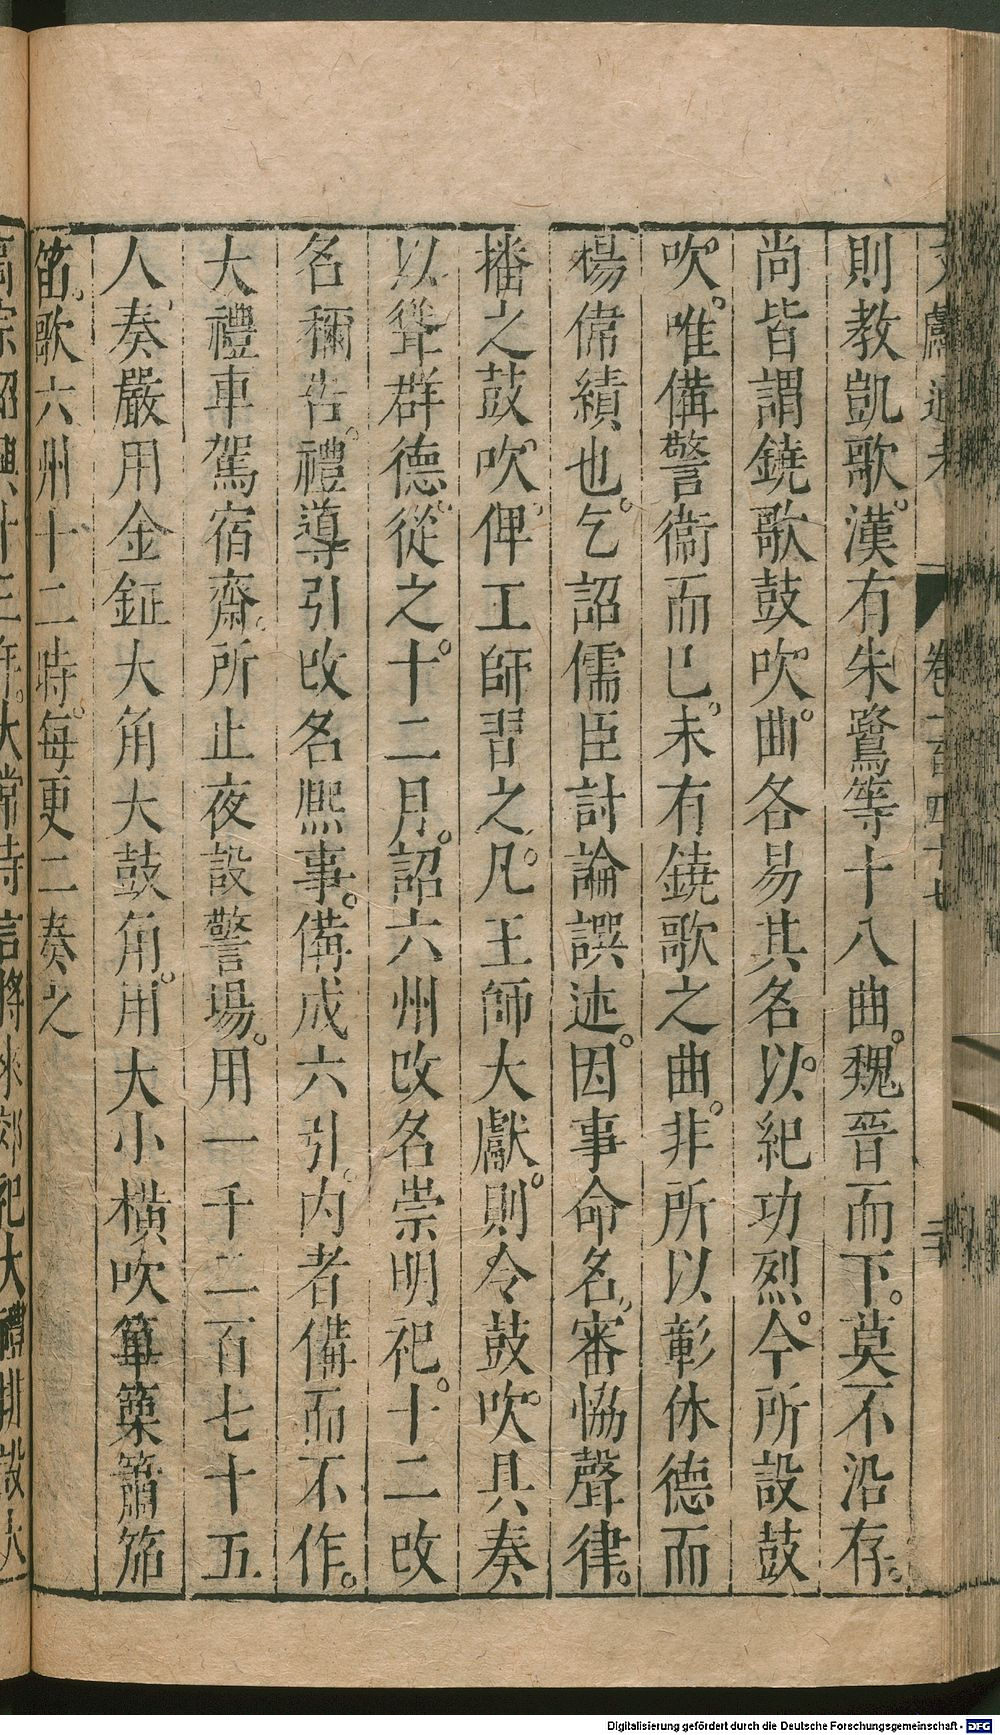 文獻通考 卷一百四十七
則教凱歌。漢有朱鷺等十八曲。魏晉而下。莫不沿存。
尚皆謂鐃歌鼓吹。曲各易其名。以紀功烈。今所設鼓
吹。唯備警衞而已。未有鐃歌之曲。非所以彰休德而
揚偉績也。乞詔儒臣討論譔述。因事命名。審恊聲律。
播之鼓吹。俾工師習之。凡王師大獻。則令鼓吹具奏
以聳群德。從之。十二月。詔六州改名崇明祀。十二改
名稱吉禮。導引改名熙事。備成六引。内者備而不作。
大禮車駕宿齋。所止夜設警場。用一千二百七十五
人奏嚴用金鉦大角大鼓角。用大小橫吹篳篥簫笳
笛。歌六州十二時。每更二奏之
高宗紹興十三年。太常寺言將來郊祀大禮排設大
Digitalisierung gefördert durch die Deutsche Forschungsgemeinschaft - DFG